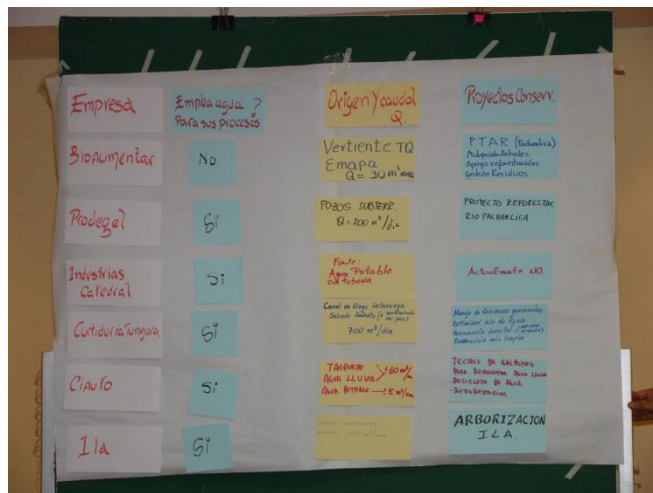 Empresa
Emplea agua ?
Para sus procesos
Origen Y caudal
Q.
Proyectos Conserv.
Bioalimentar
No
Vertiente TQ
Emapa
Q = 30 m³
PTAR (Pachanlica)
Adopción Arboles
Apoyo reforestación
Gestión Residuos
Prodegel
Si
POZOS SUBTERR.
Q = 200 m³/dia
PROYECTO REFORESTAC
RIO PACHANLICA
Industrias
Catedral
Si
Fuente:
Agua Potable
de tuberia
Actualmente NO.
Curtiduria Tungura.
Si
Canal de Riego Latacunga
Salcedo Ambato
700 m³/dia
Manejo de Residuos generados
Optimizar uso de Agua
Producción más limpia
Ciauto
Si
TANQUERO
AGUA LLUVIA
AGUA POTABLE
TECHOS DE GALPONES
PARA RECOLECTAR AGUA LLUVIA
- RECICLETO DE AGUA
Ila
Si
ARBORIZACION
ILA.